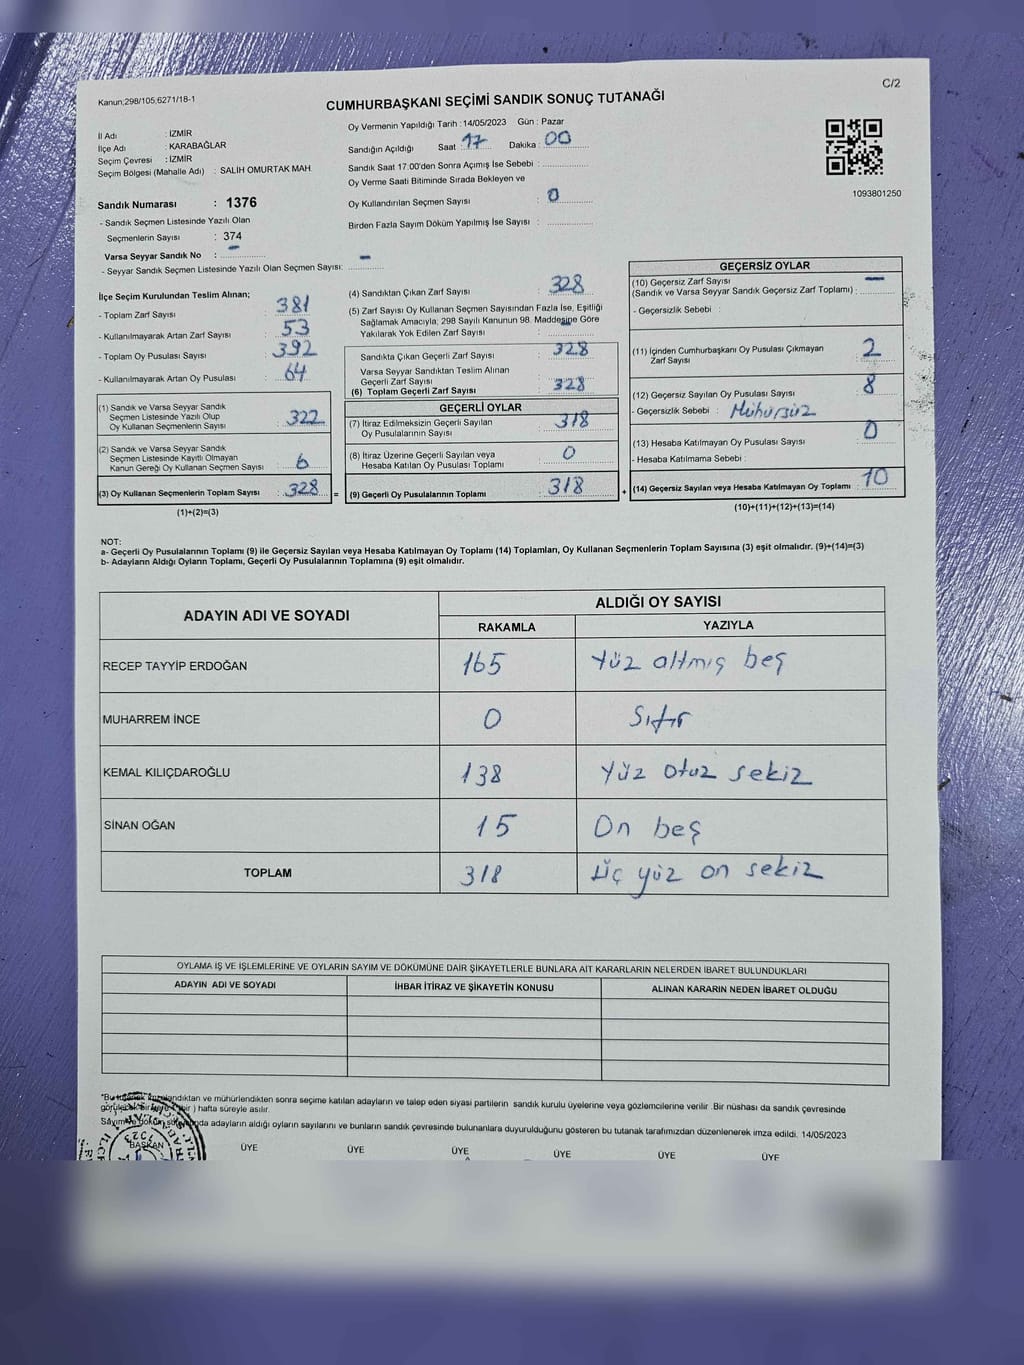 C/2
Kanun;298/105;6271/18-1
CUMHURBAŞKANI SEÇİMİ SANDIK SONUÇ TUTANAĞI
İl Adı : İZMİR
İlçe Adı : KARABAĞLAR
Seçim Çevresi : İZMİR
Seçim Bölgesi (Mahalle Adı) : SALİH OMURTAK MAH.
Sandık Numarası : 1376
- Sandık Seçmen Listesinde Yazılı Olan
Seçmenlerin Sayısı : 374
Varsa Seyyar Sandık No : -
- Seyyar Sandık Seçmen Listesinde Yazılı Olan Seçmen Sayısı: -
Oy Vermenin Yapıldığı Tarih : 14/05/2023 Gün : Pazar
Sandığın Açıldığı Saat : 17 Dakika : 00
Sandık Saat 17.00'den Sonra Açımış İse Sebebi :
Oy Verme Saati Bitiminde Sırada Bekleyen ve
Oy Kullandırılan Seçmen Sayısı : 0
Birden Fazla Sayım Döküm Yapılmış İse Sayısı :
1093801250
İlçe Seçim Kurulundan Teslim Alınan;
- Toplam Zarf Sayısı : 381
- Kullanılmayarak Artan Zarf Sayısı : 53
- Toplam Oy Pusulası Sayısı : 392
- Kullanılmayarak Artan Oy Pusulası : 64
(1) Sandık ve Varsa Seyyar Sandık
Seçmen Listesinde Yazılı Olup
Oy Kullanan Seçmenlerin Sayısı : 322
(2) Sandık ve Varsa Seyyar Sandık
Seçmen Listesinde Kayıtlı Olmayan
Kanun Gereği Oy Kullanan Seçmen Sayısı : 6
(3) Oy Kullanan Seçmenlerin Toplam Sayısı : 328 =
(1)+(2)=(3)
(4) Sandıktan Çıkan Zarf Sayısı : 328
(5) Zarf Sayısı Oy Kullanan Seçmen Sayısından Fazla İse, Eşitliği
Sağlamak Amacıyla; 298 Sayılı Kanunun 98. Maddesine Göre
Yakılarak Yok Edilen Zarf Sayısı : -
Sandıkta Çıkan Geçerli Zarf Sayısı : 328
Varsa Seyyar Sandıktan Teslim Alınan
Geçerli Zarf Sayısı :
(6) Toplam Geçerli Zarf Sayısı : 328
GEÇERLİ OYLAR
(7) İtiraz Edilmeksizin Geçerli Sayılan
Oy Pusulalarının Sayısı : 318
(8) İtiraz Üzerine Geçerli Sayılan veya
Hesaba Katılan Oy Pusulası Toplamı : 0
(9) Geçerli Oy Pusulalarının Toplamı : 318 +
GEÇERSİZ OYLAR
(10) Geçersiz Zarf Sayısı -
(Sandık ve Varsa Seyyar Sandık Geçersiz Zarf Toplamı) :
- Geçersizlik Sebebi :
(11) İçinden Cumhurbaşkanı Oy Pusulası Çıkmayan
Zarf Sayısı : 2
(12) Geçersiz Sayılan Oy Pusulası Sayısı : 8
- Geçersizlik Sebebi : Mühürsüz
(13) Hesaba Katılmayan Oy Pusulası Sayısı : 0
- Hesaba Katılmama Sebebi :
(14) Geçersiz Sayılan veya Hesaba Katılmayan Oy Toplamı : 10
(10)+(11)+(12)+(13)=(14)
NOT:
a- Geçerli Oy Pusulalarının Toplamı (9) ile Geçersiz Sayılan veya Hesaba Katılmayan Oy Toplamı (14) Toplamları, Oy Kullanan Seçmenlerin Toplam Sayısına (3) eşit olmalıdır. (9)+(14)=(3)
b- Adayların Aldığı Oyların Toplamı, Geçerli Oy Pusulalarının Toplamına (9) eşit olmalıdır.
ADAYIN ADI VE SOYADI ALDIĞI OY SAYISI
RAKAMLA YAZIYLA
RECEP TAYYİP ERDOĞAN 165 Yüz altmış beş
MUHARREM İNCE 0 Sıfır
KEMAL KILIÇDAROĞLU 138 Yüz otuz sekiz
SİNAN OĞAN 15 On beş
TOPLAM 318 Üç yüz on sekiz
OYLAMA İŞ VE İŞLEMLERİNE VE OYLARIN SAYIM VE DÖKÜMÜNE DAİR ŞİKAYETLERLE BUNLARA AİT KARARLARIN NELERDEN İBARET BULUNDUKLARI
ADAYIN ADI VE SOYADI İHBAR İTİRAZ VE ŞİKAYETİN KONUSU ALINAN KARARIN NEDEN İBARET OLDUĞU
"Bu tutanak imzalandıktan ve mühürlendikten sonra seçime katılan adayların ve talep eden siyasi partilerin sandık kurulu üyelerine veya gözlemcilerine verilir .Bir nüshası da sandık çevresinde
bir ) hafta süreyle asılır.
adayların aldığı oyların sayılarını ve bunların sandık çevresinde bulunanlara duyurulduğunu gösteren bu tutanak tarafımızdan düzenlenerek imza edildi. 14/05/2023
BAŞKAN ÜYE ÜYE ÜYE ÜYE ÜYE ÜYE